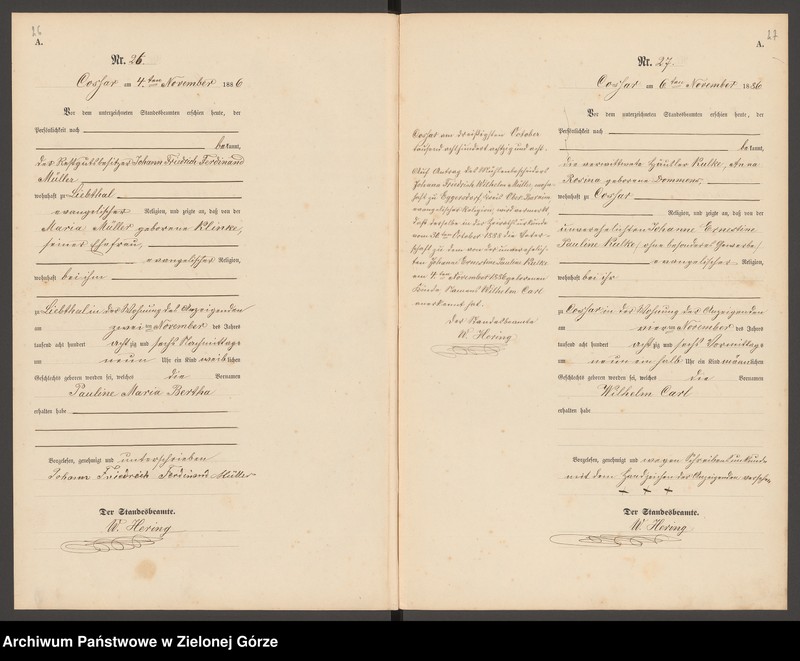 26
A.
Nr. 26
Cossar am 4. ten November 1886
Vor dem unterzeichneten Standesbeamten erschien heute, der
Persönlichkeit nach
bekannt,
der Johann Friedrich Ferdinand
Müller
wohnhaft zu Liebthal
evangelischer Religion, und zeigte an, daß von der
Maria Müller geborene Klinke,
seiner Ehefrau,
evangelischer Religion,
wohnhaft bei ihm
zu Liebthal in der Wohnung des Anzeigenden
am zwei ten November des Jahres
tausend acht hundert achtzig und sechs Nachmittags
um neun Uhr ein Kind weiblichen
Geschlechts geboren worden sei, welches die Vornamen
Pauline Maria Bertha
erhalten habe
Vorgelesen, genehmigt und unterschrieben
Johann Friedrich Ferdinand Müller
Der Standesbeamte.
W. Hering
Cossar am dreißigsten October
tausend achthundert achtzig und acht.
Auf Antrag des
Johann Friedrich Wilhelm Müller, wohn-
haft zu Eggersdorf, Kreis Ober-Barnim
evangelischer Religion, wird vermerkt,
daß derselbe in der
vom 30 ten October 1888 die Vater-
schaft zu dem von der unverehelich-
ten Johanne Ernestine Pauline Kulke
am 4 ten November 1886 geborenen
Kinde Namens Wilhelm Carl
anerkannt hat.
Der Standesbeamte
W. Hering
27
A.
Nr. 27
Cossar am 6 ten November 1886
Vor dem unterzeichneten Standesbeamten erschien heute, der
Persönlichkeit nach
bekannt,
die verwittwete Häusler Kulke, Anna
Rosina geborene
wohnhaft zu Cossar
Religion, und zeigte an, daß von der
unverehelichten Johanne Ernestine
Pauline Kulke, ohne besonderes Gewerbe,
evangelischer Religion,
wohnhaft bei ihr
zu Cossar in der Wohnung der Anzeigenden
am vier ten November des Jahres
tausend acht hundert achtzig und sechs Vormittags
um neun ein halb Uhr ein Kind männlichen
Geschlechts geboren worden sei, welches die Vornamen
Wilhelm Carl
erhalten habe
Vorgelesen, genehmigt und wegen Schreibensunkunde
mit dem Handzeichen der Anzeigenden versehen
+ + +
Der Standesbeamte.
W. Hering
Archiwum Państwowe w Zielonej Górze